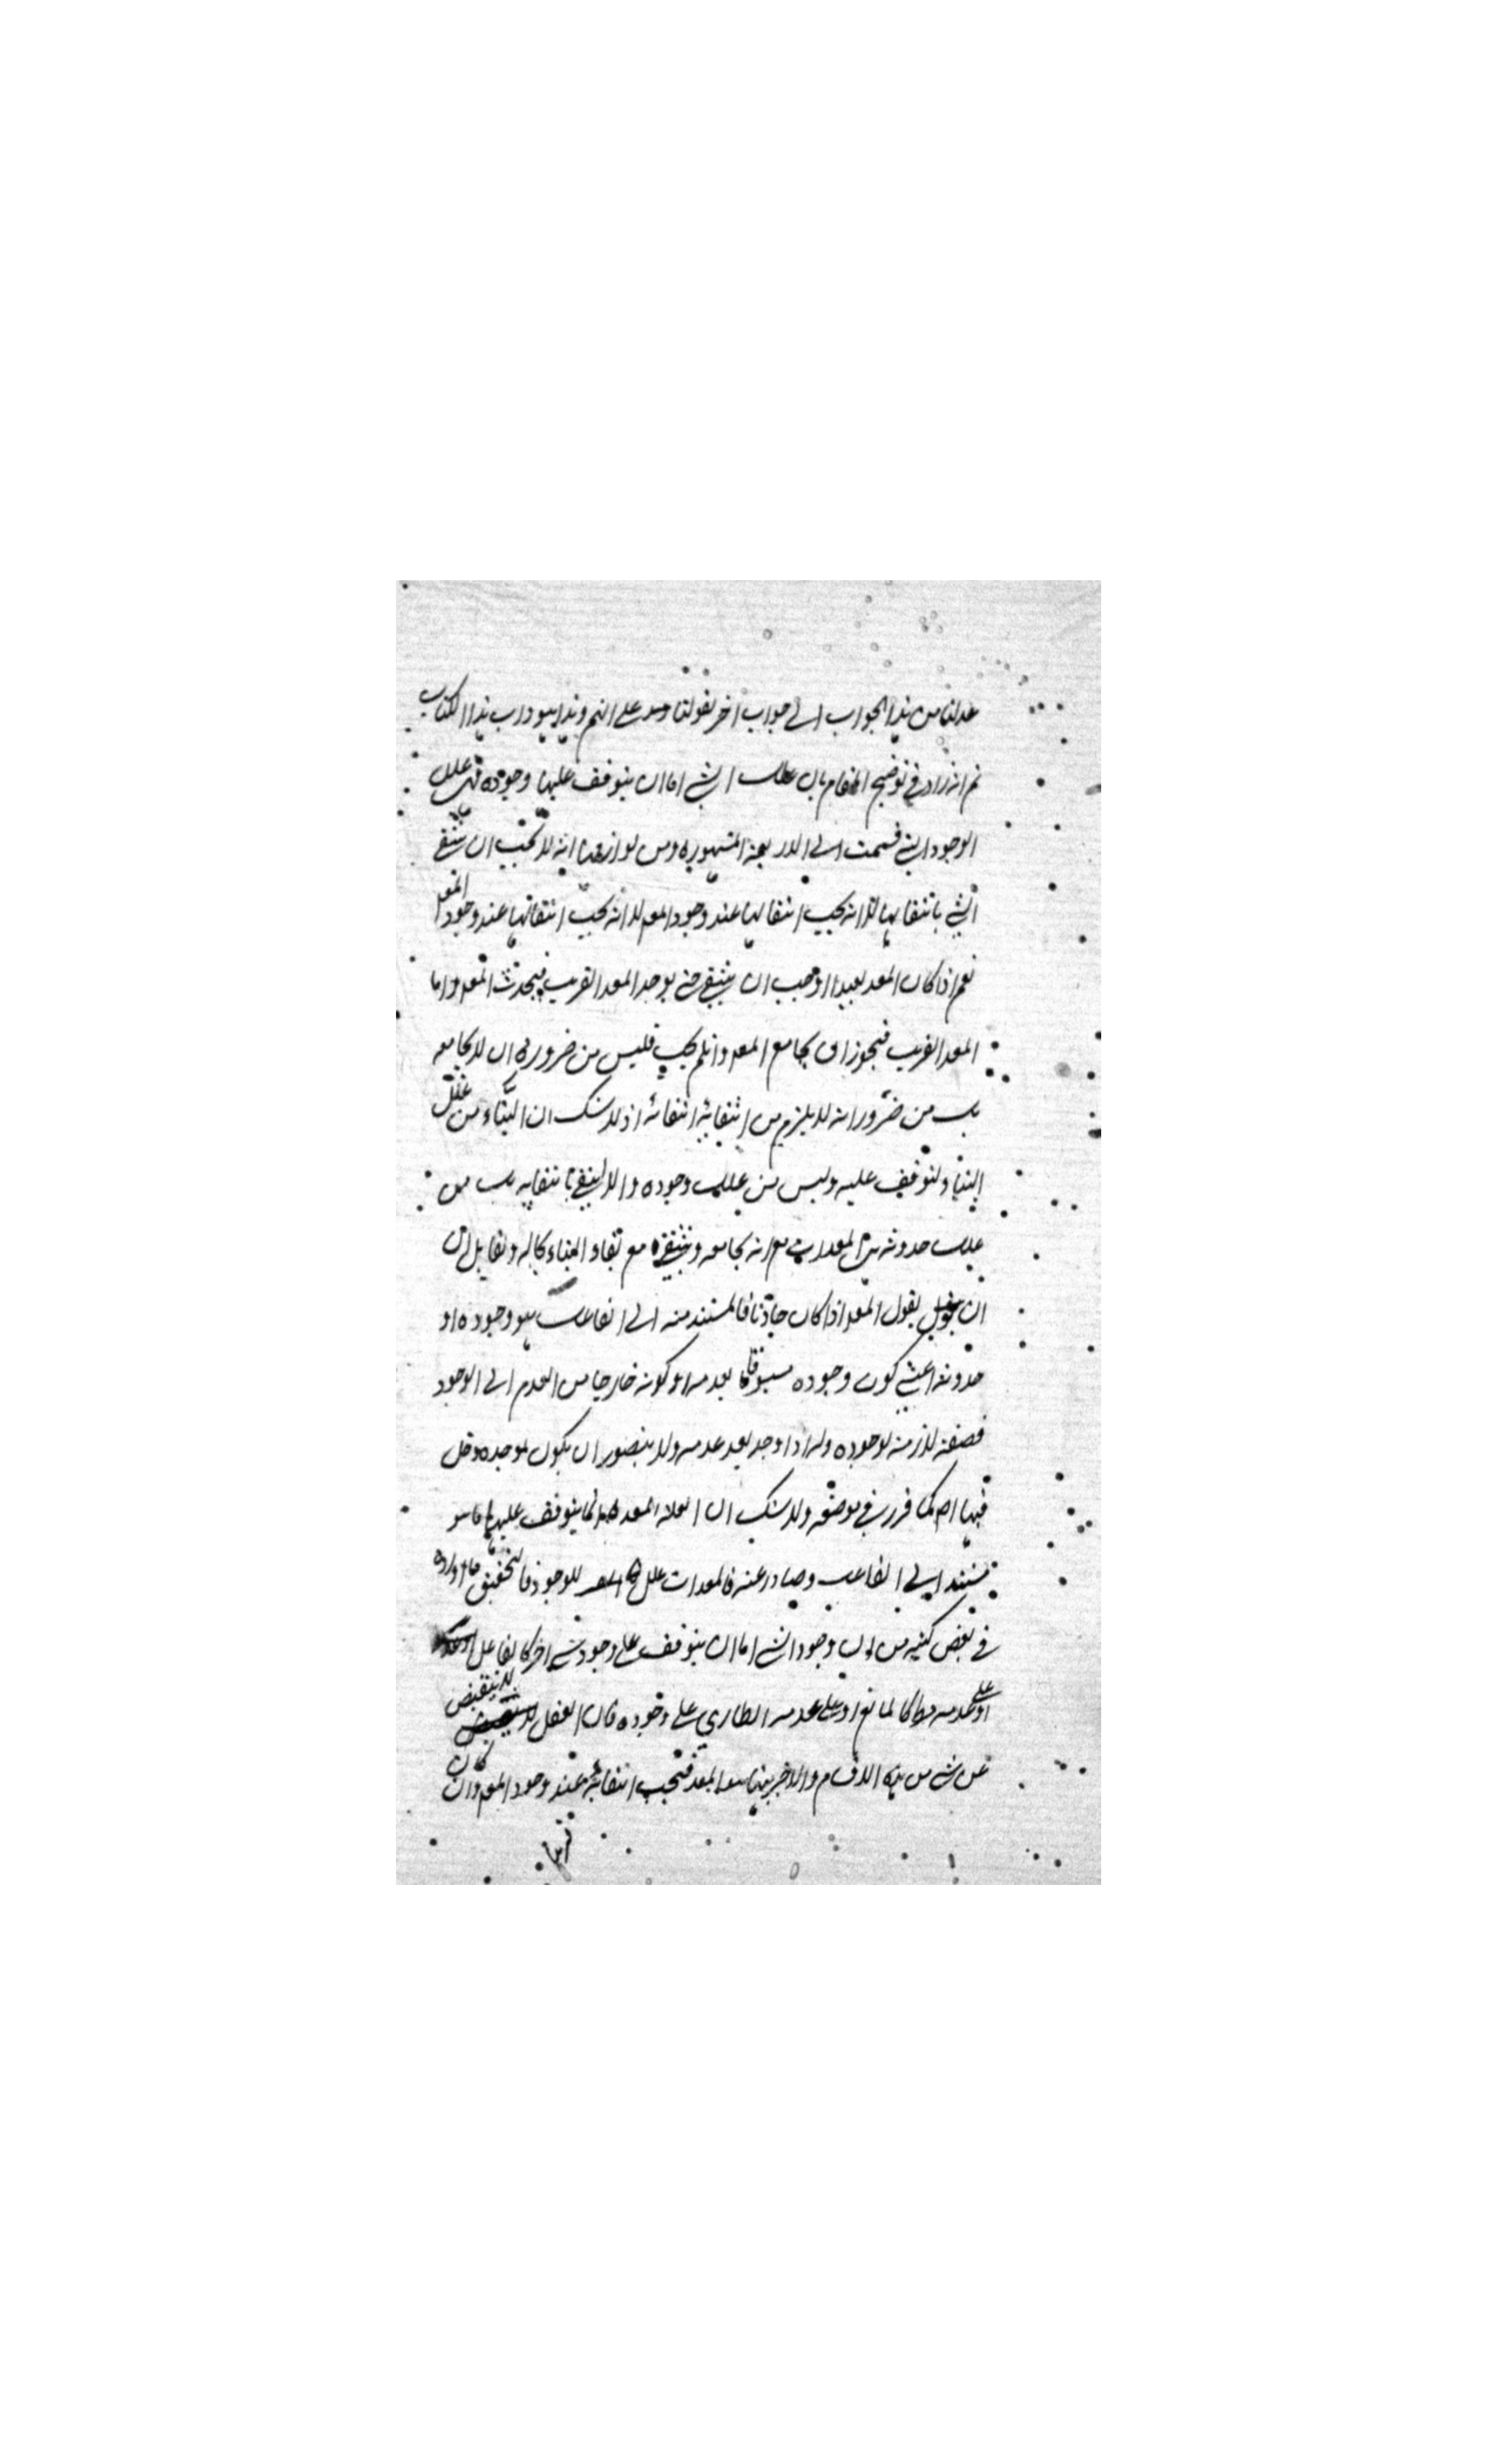 عدلنا من هذا الجواب الى جواب اخر بقولنا وبعد على انهم وهذا هو داب هذا الكتاب
ثم انه زاد في توضيح المقام بان علل الشي اما ان يتوقف عليها وجوده فهي علل
الوجود التي قسمت الى الاربعة المشهورة ومن لوازمها انه لا يجب ان ينتفي
الشي بانتفائها لا انه يجب انتفائها عند وجود المع لا انه يجب انتفائها عند وجود المع
نعم اذا كان المعد بعيدا وجب ان ينتفي حتى يوجد المعد القريب فيحدث المع واما
المعد القريب فيجوز ان يجامع المع وان لم يجب فليس من ضرورته ان لا يجامعه
بل من ضروراته لا يلزم من انتفائه انتفائه اذ لا شك ان البناء من علل
البناء لتوقف عليه وليس من علل وجوده والا لينتفي بانتفائه بل من
علل حدوثه من المعدات مع انه يجامعه وينتفي مع بقاء البناء بحاله ولقايل ان
ان يقول المعد اذا كان حادثا فالمستند منه الى الفاعل هو وجوده او
حدوثه اعني كون وجوده مسبوقا بعدمه او كونه خارجا من العدم الى الوجود
فصفة لازمة لوجوده اذا وجد بعد عدمه ولا يتصور ان يكون لموجده دخل
فيها اص كما قرر في موضعه ولا شك ان العلة المعدة انما يتوقف عليها ما هو
مستند الى الفاعل وصادر عنه فالمعدات علل للوجود فالتحقيق ما اورده
في بعض كتبه من ان وجود الشي اما ان يتوقف على وجود شي اخر كالفاعل
او على عدمه كالمانع او على عدمه الطاري على وجوده فان العقل لا ينقبض
عن شي من هذه الاقسام والاخير منها هو المعد فيجب انتفائه عند وجود المع وان كان
قريبا